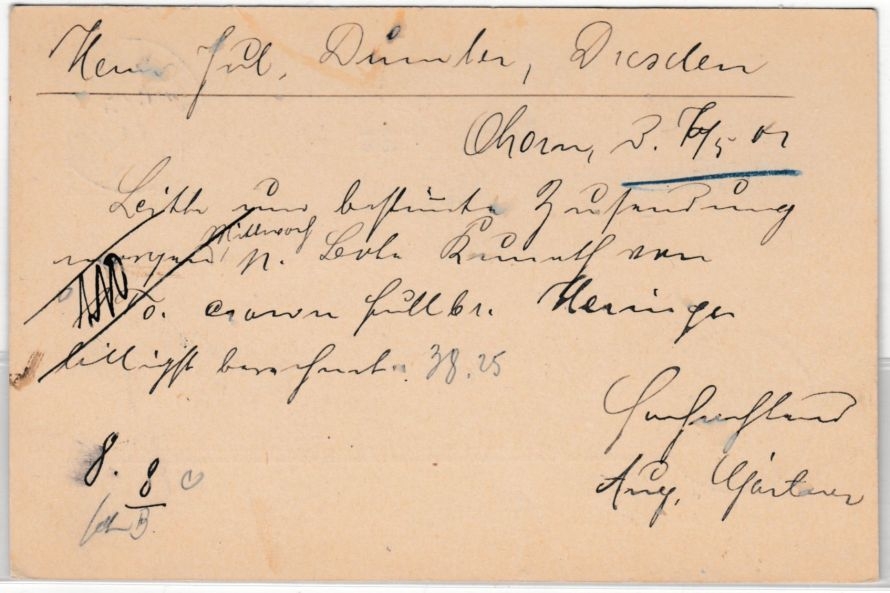 Herrn Jul. Dümler, Dresden
Ohorn, d. 7/5 01
Bitte um bestimmte Zusendung
morgen Mittwoch p. Bote Kunath von
To. crown fullbr. Heringe
billigst berechnet. 38.25
Hochachtend
Aug. Gärtner
8. 8